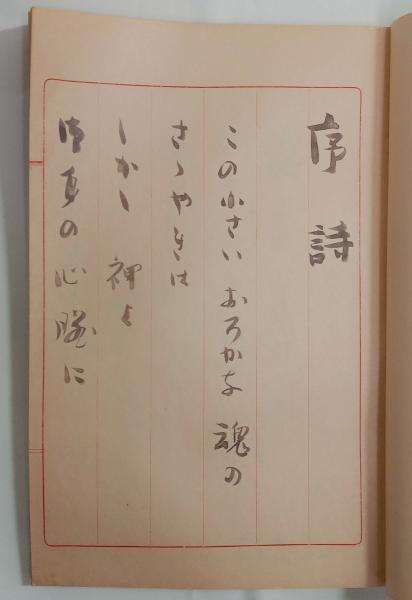 序詩
この小さい おろかな 魂の
さゝやきは
しかし 神よ
御身の心臓に